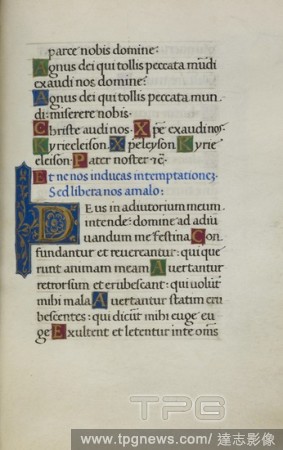 parce nobis domine:
Agnus dei qui tollis peccata mūdi
exaudi nos domine:
Agnus dei qui tollis peccata mun
di: miserere nobis·
Christe audi nos· Xp̄e exaudi nos·
Kyrieeleison· Xp̄eleyson· Kyrie
eleison· Pater noster τc̄·
Et ne nos inducas intemptationeʒ·
Sed libera nos amalo:
Deus in adiutorium meum
intende: domine ad adiu
uandum me festina· Con
fundantur et reuereantur: qui que
runt animam meam· Auertantur
retrorsum et erubescant: qui uolūt
mihi mala· Auertantur statim eru
bescentes: qui dicūt mihi euge eu
ge· Exultent et letentur inte om̄s
TPG
www.tpgnews.com/達志影像